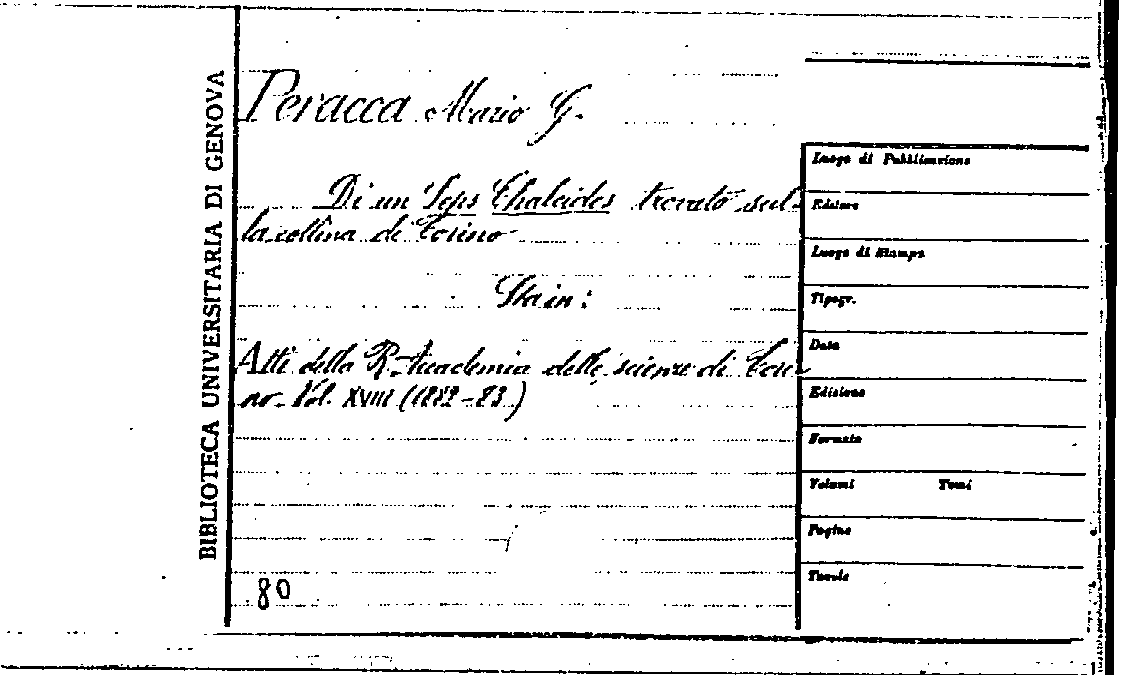 BIBLIOTECA UNIVERSITARIA DI GENOVA
Peracca Mario G.
Di un Seps Chalcides trovato sul-
la collina di Torino
Sta in:
Atti della R. Accademia delle scienze di Tori
no. Vol. XVIII (1882-83)
80
Luogo di Pubblicazione
Editore
Luogo di Stampa
Tipogr.
Data
Edizione
Formato
Volumi Tomi
Pagine
Tavole